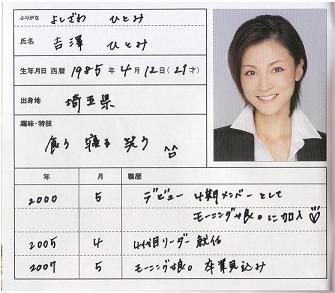 ふりがな よしざわ ひとみ
氏名 吉澤 ひとみ
生年月日 西暦 1985年4月12日(21才)
出身地 埼玉県
趣味・特技
食う 寝る 笑う ^^
年 月 職歴
2000 5 デビュー 4期メンバーとして
モーニング娘。に加入♡
2005 4 4代目リーダー就任
2007 5 モーニング娘。卒業見込み